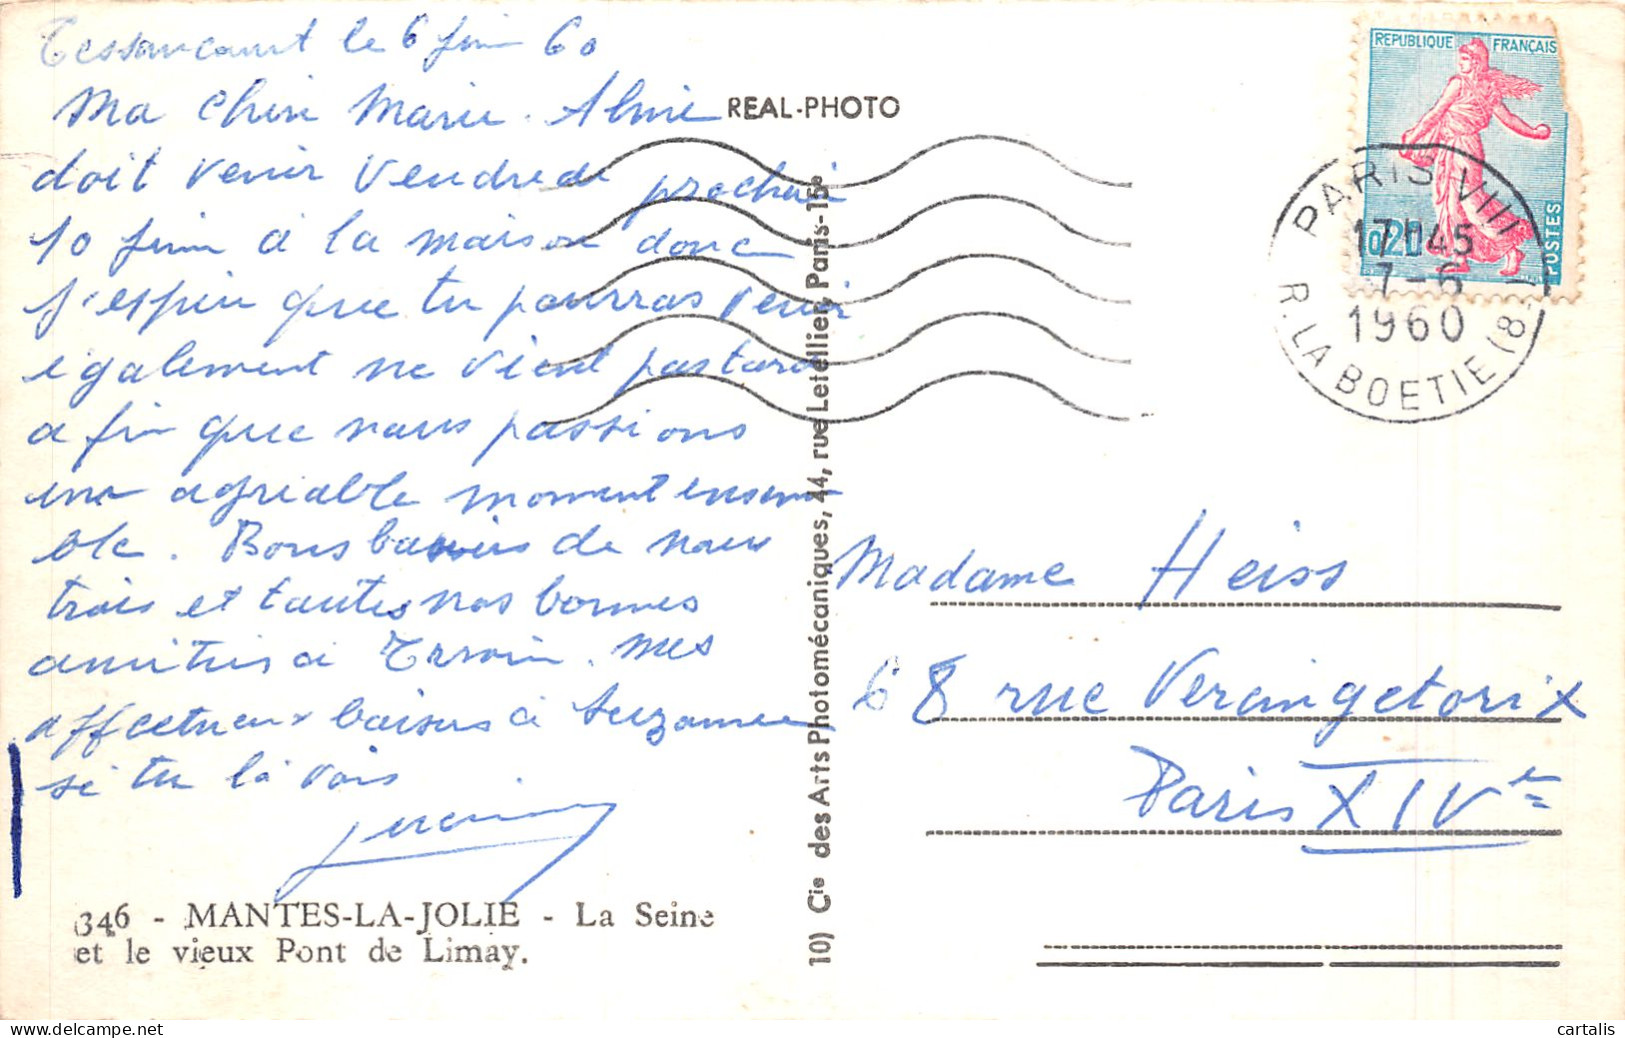 Tessancourt le 6 juin 60
Ma cherie Marie. Aline
doit venir Vendredi prochain
10 juin à la maison donc
j'espere que tu pourras venir
également ne vient pas tard
afin que nous passions
une agréable moment ensem
ble. Bons baisers de nous
trois et toutes nos bonnes
amitiés à . mes
affectueux baisers à Suzanne
si tu la vois
346 - MANTES-LA-JOLIE - La Seine
et le vieux Pont de Limay.
REAL-PHOTO
10) Cie des Arts Photomécaniques, 44, rue Letellier, Paris-15e
REPUBLIQUE FRANÇAISE
0,20
POSTES
PARIS VIII
17H45
7-6
1960
R. LA BOETIE (8e)
Madame Heiss
68 rue Vercingetorix
Paris XIVe
cartalis